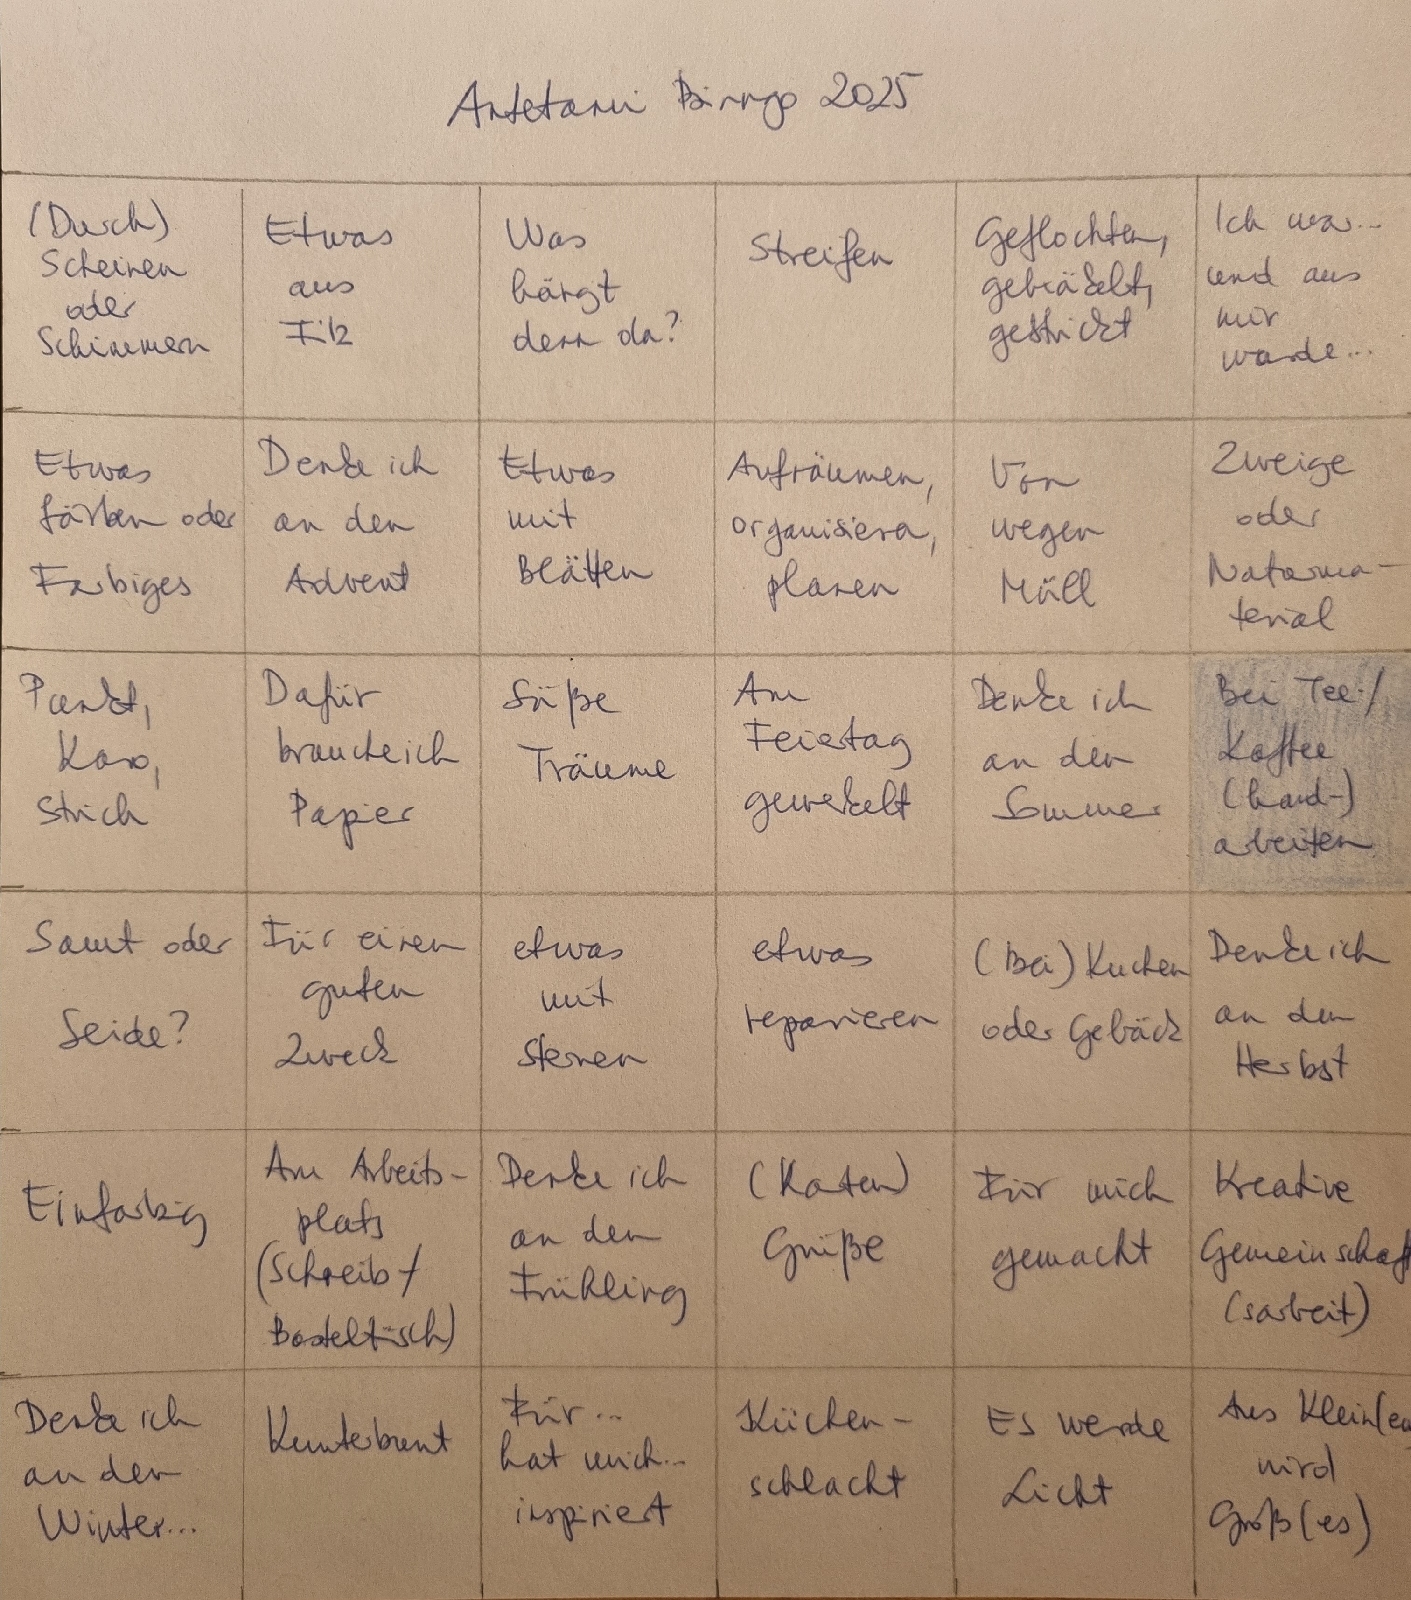 Antetanni Bingo 2025
(Durch)
Scheinen
oder
Schimmern
Etwas
aus
Filz
Was
hängt
denn da?
Streifen
Geflochten,
gehäkelt,
gestrickt
Ich war...
und aus
mir
wurde...
Etwas
färben oder
Farbiges
Denke ich
an den
Advent
Etwas
mit
Blättern
Aufräumen,
organisieren,
planen
Von
wegen
Müll
Zweige
oder
Naturma-
terial
Punkt,
Karo,
Strich
Dafür
brauche ich
Papier
Süße
Träume
Am
Feiertag
gewerkelt
Denke ich
an den
Sommer
Bei Tee-/
Kaffee
(hand-)
arbeiten
Samt oder
Seide?
Für einen
guten
Zweck
etwas
mit
Sternen
etwas
reparieren
(Bei) Kuchen
oder Gebäck
Denke ich
an den
Herbst
Einfarbig
Am Arbeits-
platz
(Schreib-/
Basteltisch)
Denke ich
an den
Frühling
(Karten)
Grüße
Für mich
gemacht
Kreative
Gemeinschaft
(sarbeit)
Denke ich
an den
Winter...
Kunterbunt
Für...
hat mich...
inspiriert
Küchen-
schlacht
Es werde
Licht
Aus Klein(em
wird
Groß(es)